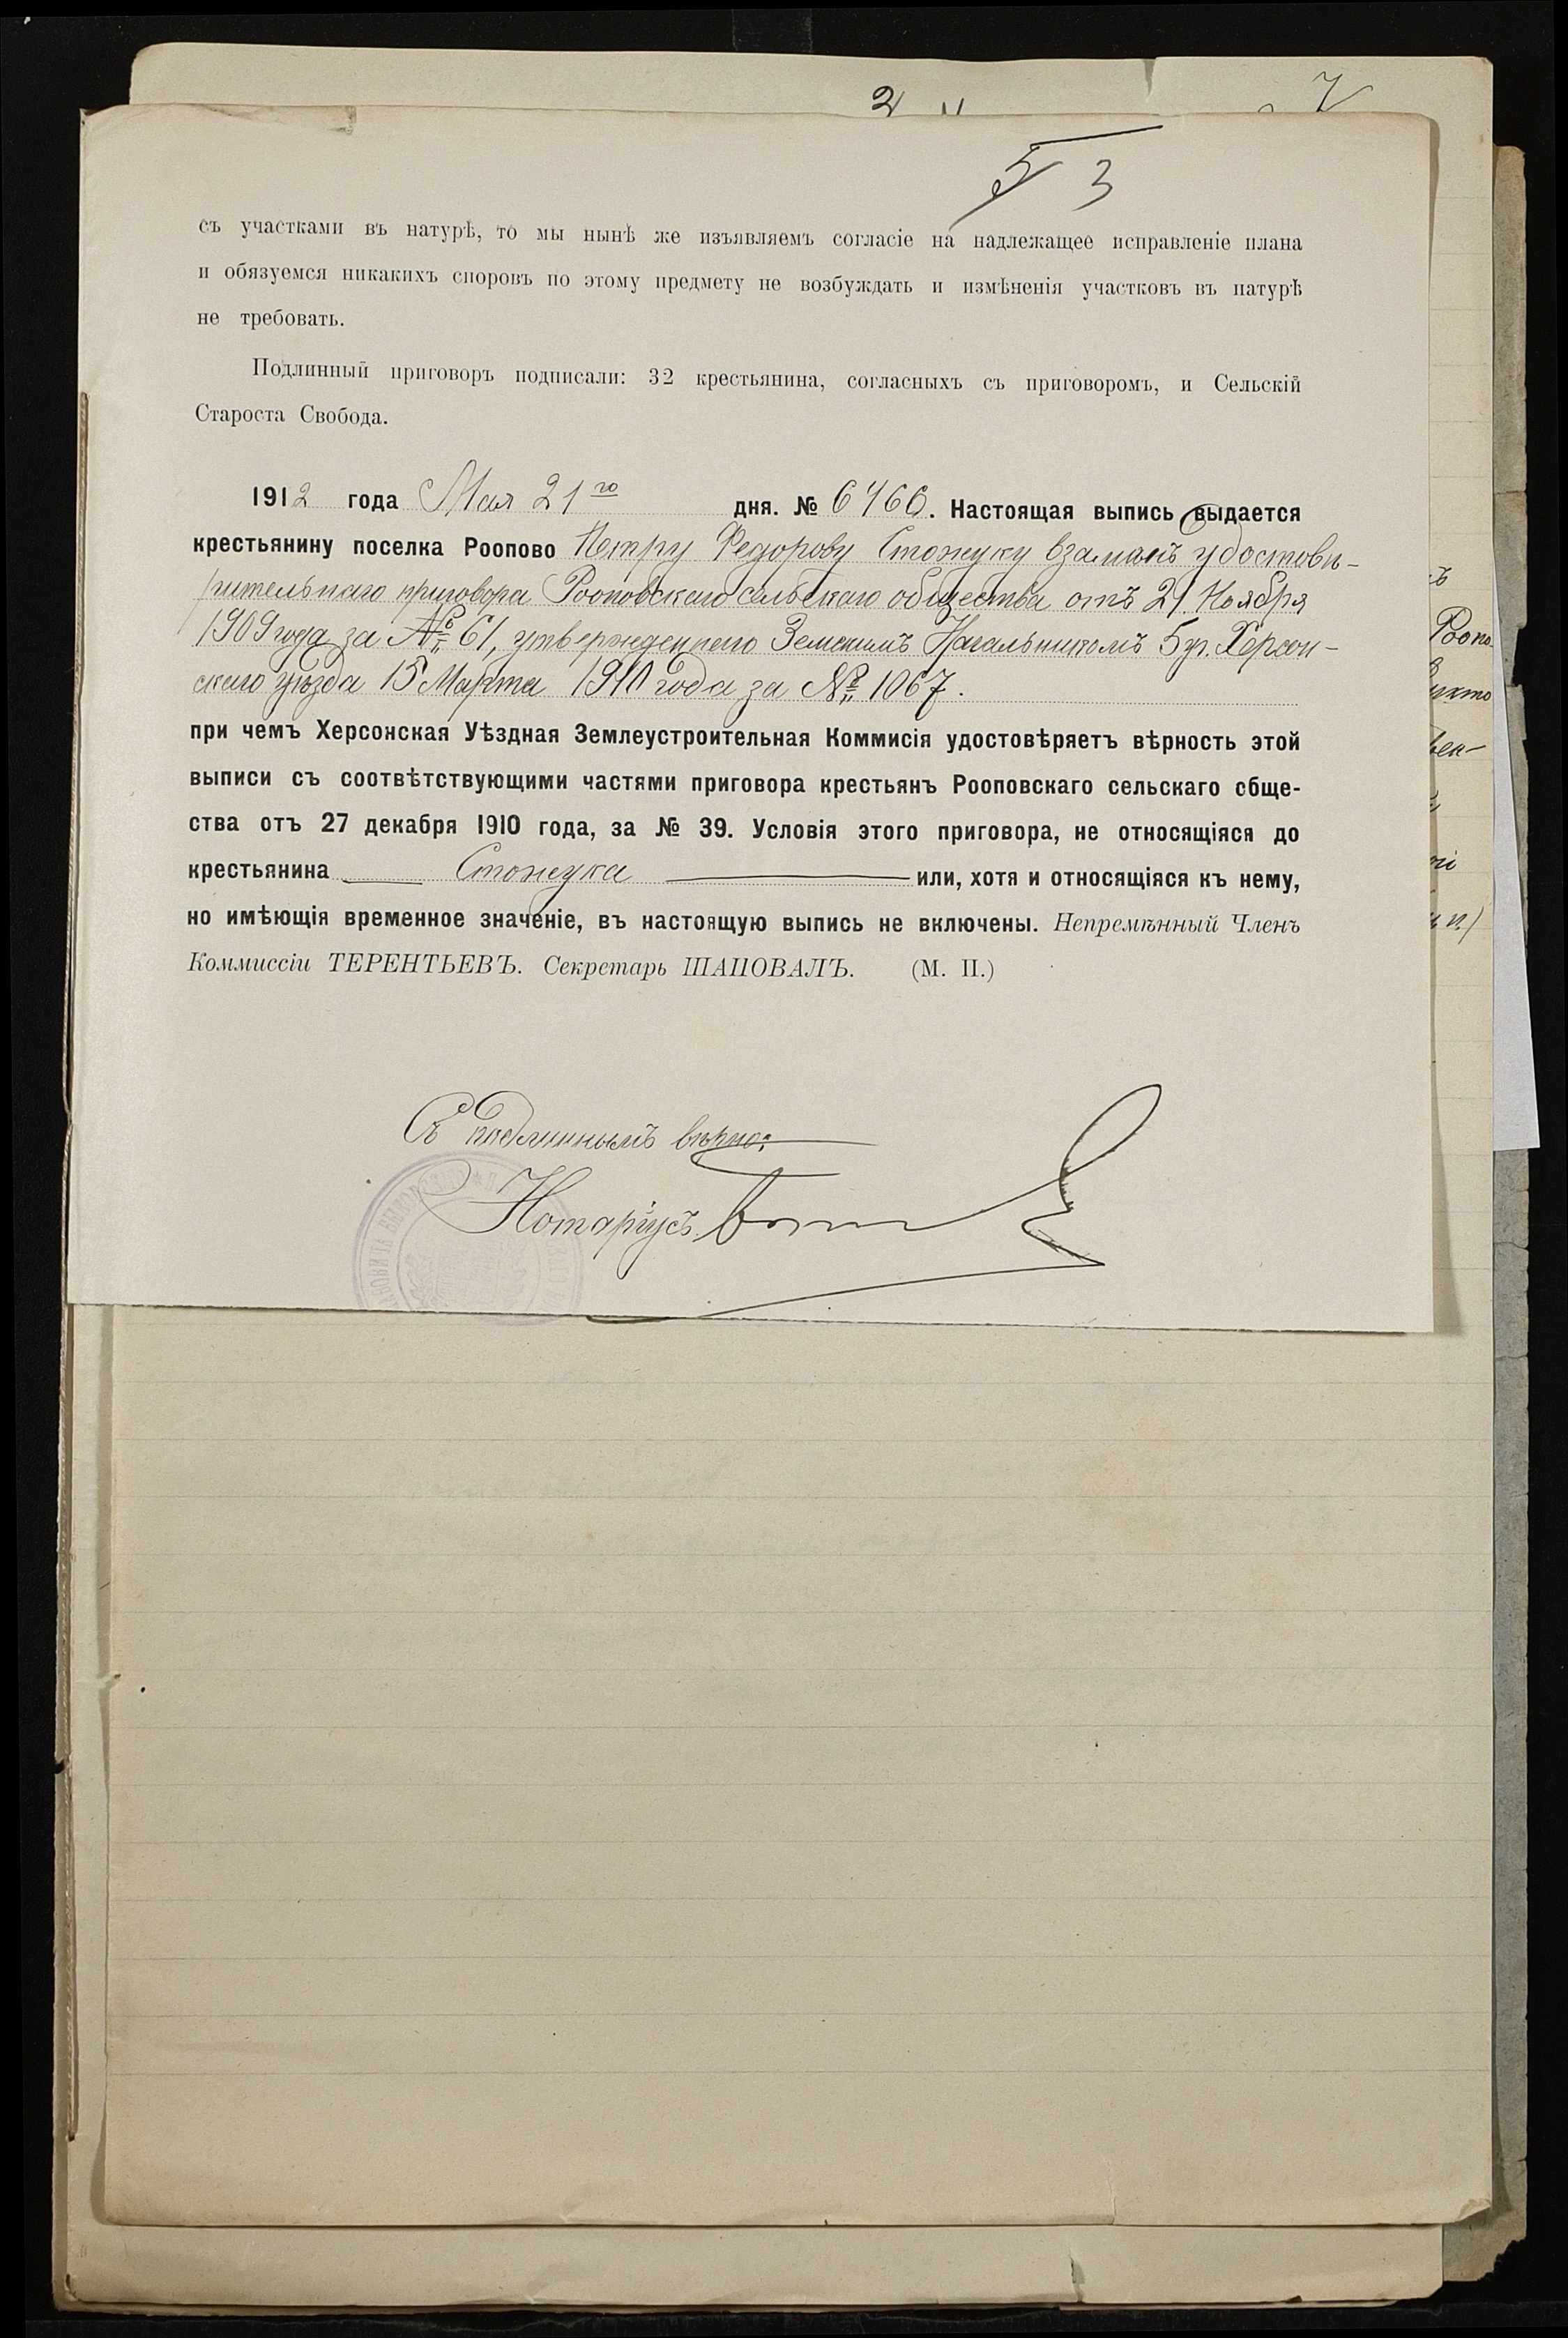 2
7
5 3
съ участками въ натурѣ, то мы нынѣ же изъявляемъ согласіе на надлежащее исправленіе плана
и обязуемся никакихъ споровъ по этому предмету не возбуждать и измѣненія участковъ въ натурѣ
не требовать.
Подлинный приговоръ подписали: 32 крестьянина, согласныхъ съ приговоромъ, и Сельскій
Староста Свобода.
1912 года Мая 21го дня. № 6466. Настоящая выпись выдается
крестьянину поселка Роопово Петру Федорову Стонуку взамѣнъ удостовѣ-
рительнаго приговора Рооповскаго сельскаго общества отъ 21 Ноября
1909 года за № 61, утвержденнаго Земскимъ Начальникомъ 5 уч. Херсон-
скаго уѣзда 15 Марта 1910 года за № 1067.
при чемъ Херсонская Уѣздная Землеустроительная Коммисія удостовѣряетъ вѣрность этой
выписи съ соотвѣтствующими частями приговора крестьянъ Рооповскаго сельскаго обще-
ства отъ 27 декабря 1910 года, за № 39. Условія этого приговора, не относящіяся до
крестьянина Стонука или, хотя и относящіяся къ нему,
но имѣющія временное значеніе, въ настоящую выпись не включены. Непремѣнный Членъ
Коммиссіи ТЕРЕНТЬЕВЪ. Секретарь ШАПОВАЛЪ. (М. П.)
Съ подлиннымъ вѣрно:
Нотаріусъ